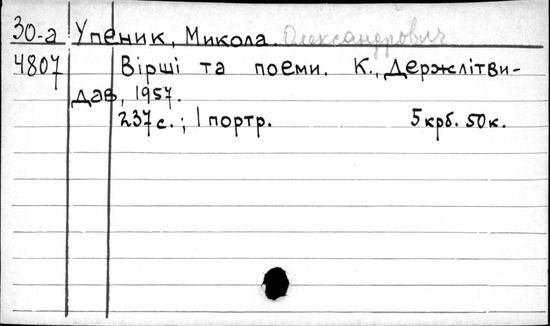 30-а Упеник, Микола. Олександрович
4807 Вірші та поеми. К., Держлітви-
дав, 1957.
237 с.; 1 портр. 5 крб. 50 к.